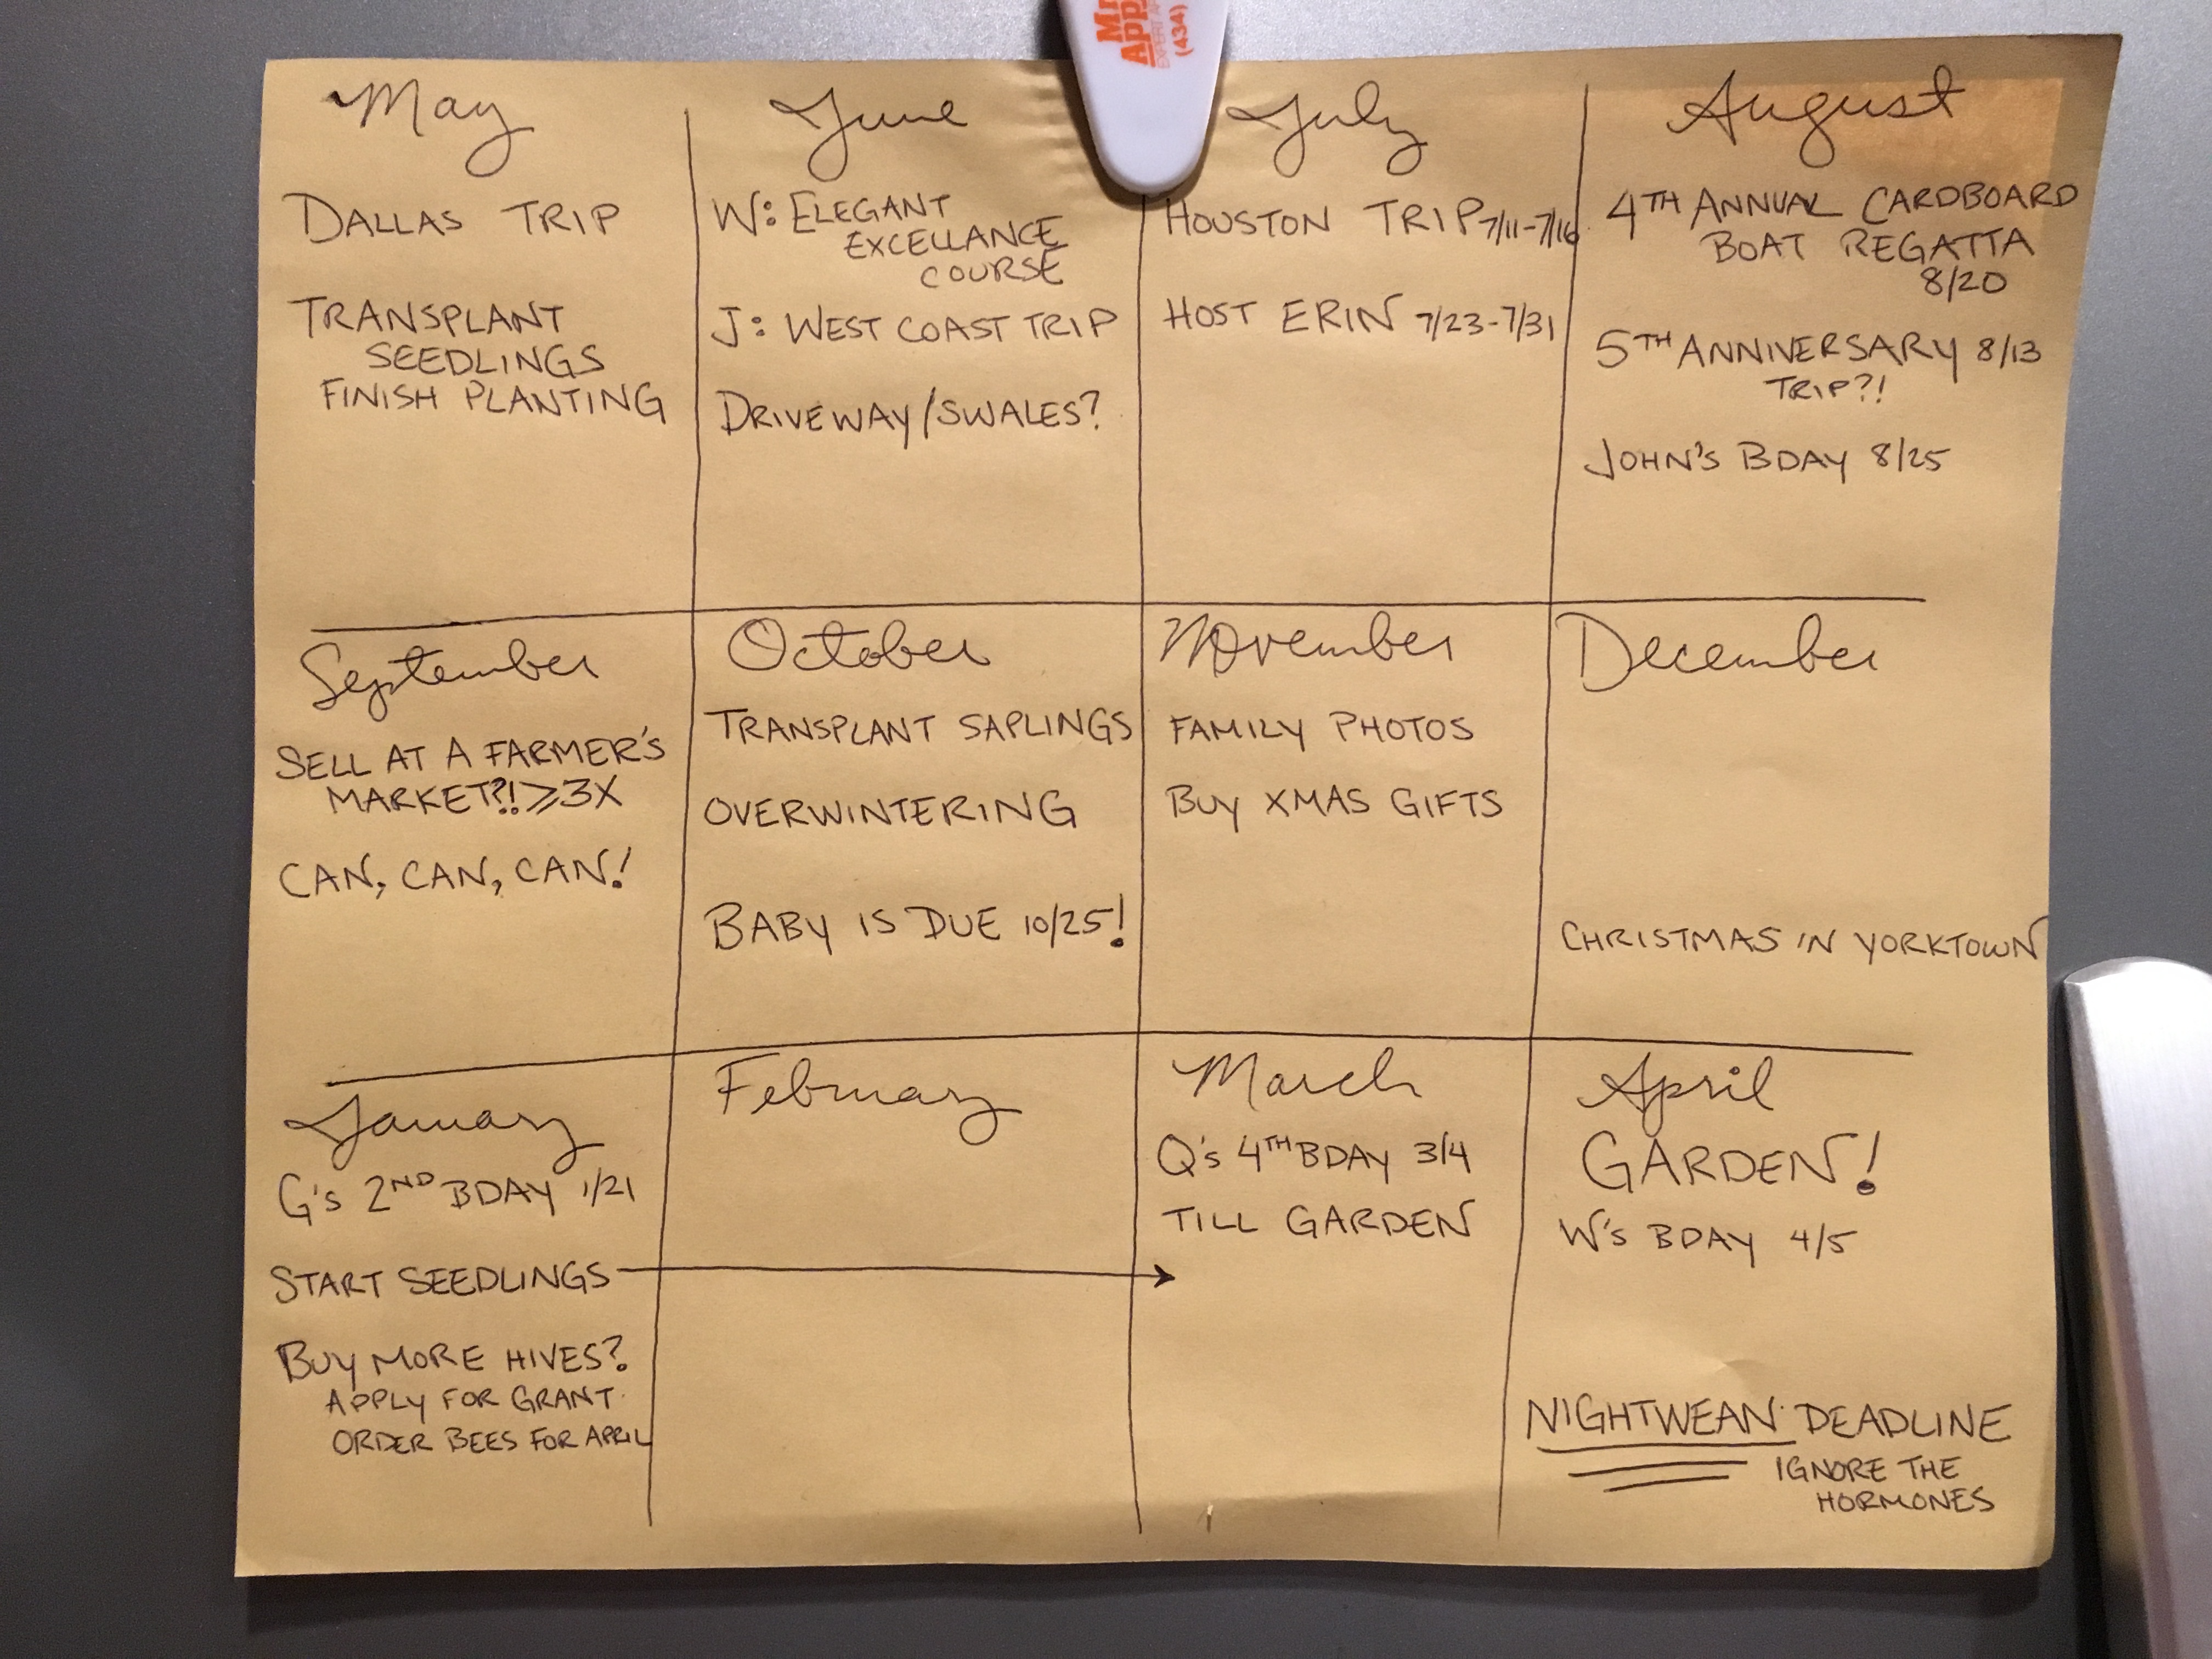 Mr
APP
EXPERT AP
(434)
May
DALLAS TRIP
TRANSPLANT
SEEDLINGS
FINISH PLANTING
June
W: ELEGANT
EXCELLANCE
COURSE
J: WEST COAST TRIP
DRIVEWAY/SWALES?
July
HOUSTON TRIP 7/11-7/16
HOST ERIN 7/23-7/31
August
4TH ANNUAL CARDBOARD
BOAT REGATTA
8/20
5TH ANNIVERSARY 8/13
TRIP?!
JOHN'S BDAY 8/25
September
SELL AT A FARMER'S
MARKET?! ≥3X
CAN, CAN, CAN!
October
TRANSPLANT SAPLINGS
OVERWINTERING
BABY IS DUE 10/25!
November
FAMILY PHOTOS
BUY XMAS GIFTS
December
CHRISTMAS IN YORKTOWN
January
G's 2ND BDAY 1/21
START SEEDLINGS →
BUY MORE HIVES?
APPLY FOR GRANT
ORDER BEES FOR APRIL
February
March
Q's 4TH BDAY 3/4
TILL GARDEN
April
GARDEN!
W's BDAY 4/5
NIGHTWEAN DEADLINE
IGNORE THE
HORMONES